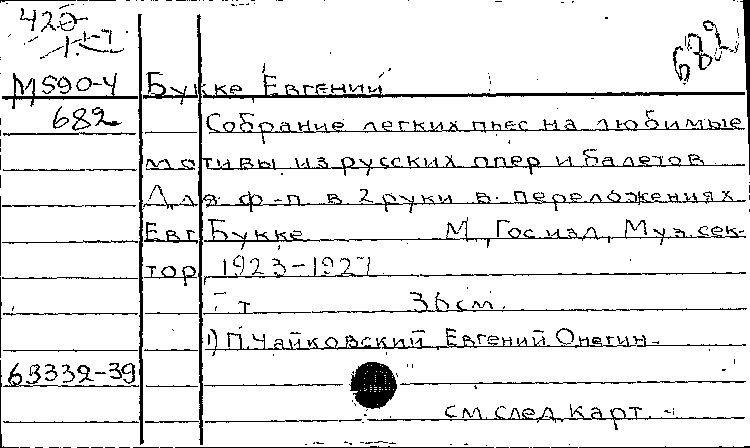 420
1-7
682
М590-4 Букке, Евгений
682 Собрание легких пьес на любимые
мотивы из русских опер и балетов
Для ф-п. в 2 руки в переложениях
Евг. Букке М., Госизд., Муз. сек-
тор, 1923-1927
т. 36 см.
1) П. Чайковский. Евгений Онегин.-
63332-39
см. след. карт.